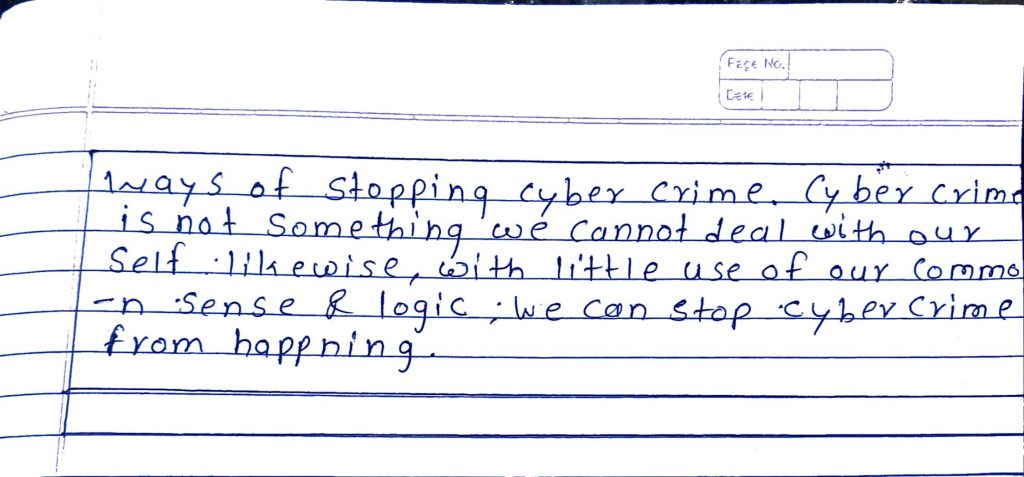 Page No.
Date
ways of stopping cyber crime. Cyber crime
is not something we cannot deal with our
self. likewise, with little use of our commo
-n sense & logic, we can stop cyber crime
from happning.